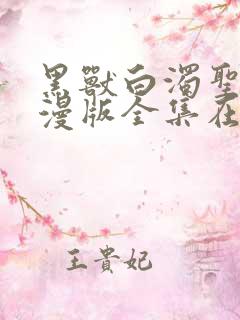 黑獸白濁聖
漫版全集在
王貴妃